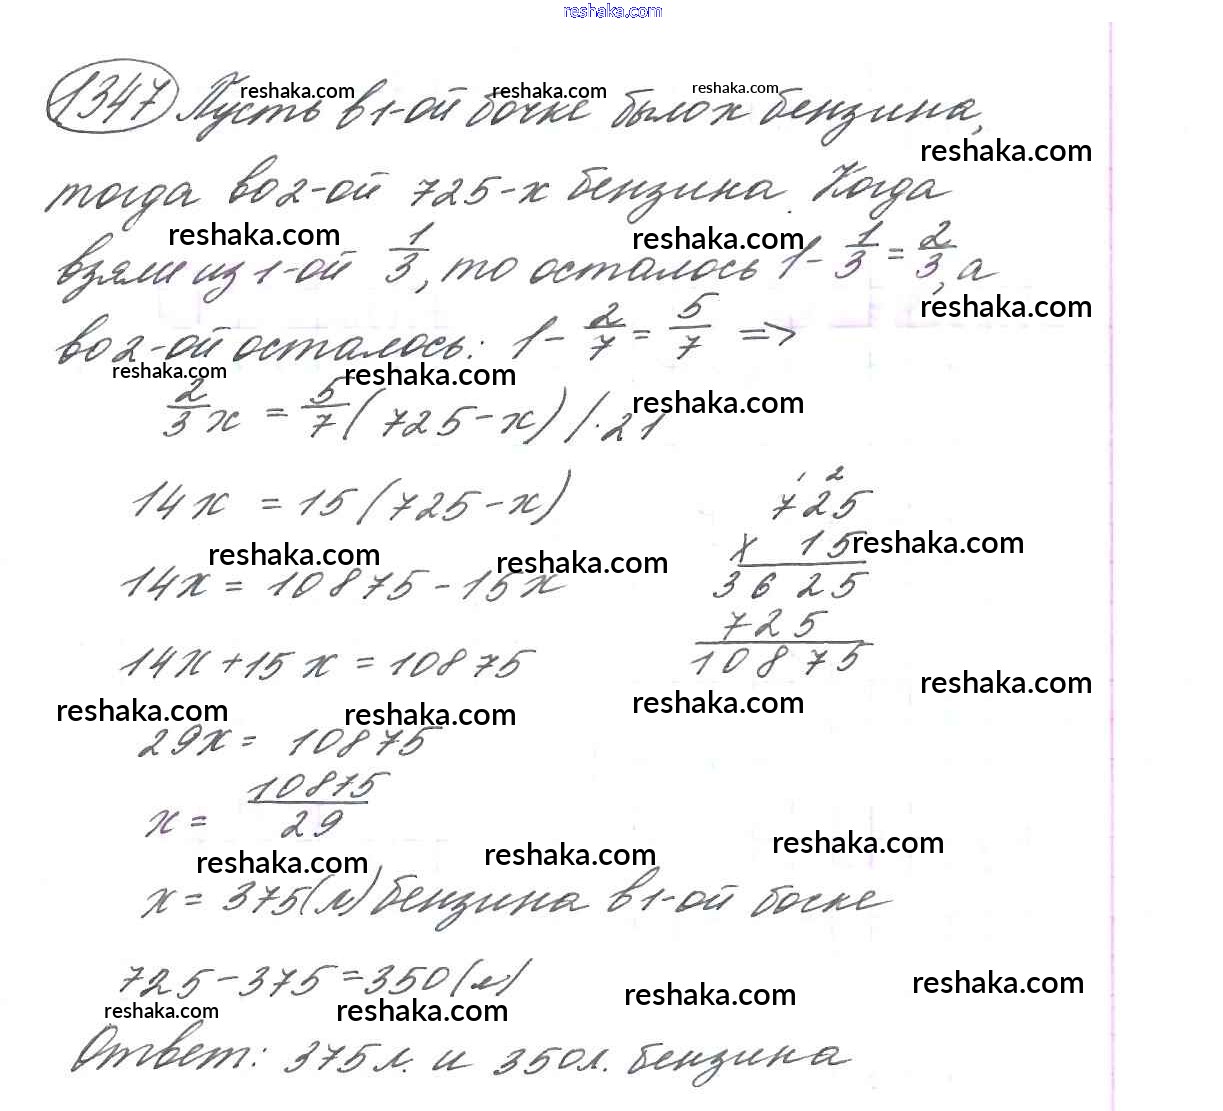 reshaka.com
1347 Пусть в 1-ой бочке было x бензина,
reshaka.com reshaka.com reshaka.com
reshaka.com
тогда во 2-ой 725-x бензина. Когда
reshaka.com reshaka.com
взяли из 1-ой 1/3, то осталось 1 - 1/3 = 2/3, а
reshaka.com
во 2-ой осталось: 1 - 2/7 = 5/7 =>
reshaka.com reshaka.com
2/3 x = 5/7 (725-x) / ·21
reshaka.com
14x = 15 (725-x)
14x = 10875 - 15x
reshaka.com reshaka.com
14x + 15x = 10875
reshaka.com reshaka.com
29x = 10875
x = 10875/29
reshaka.com reshaka.com reshaka.com
x = 375 (л) бензина в 1-ой боске
725 - 375 = 350 (л)
reshaka.com reshaka.com reshaka.com reshaka.com
Ответ: 375 л. и 350 л. бензина
1 2
725
x 15 reshaka.com
3625
725
10875
reshaka.com reshaka.com